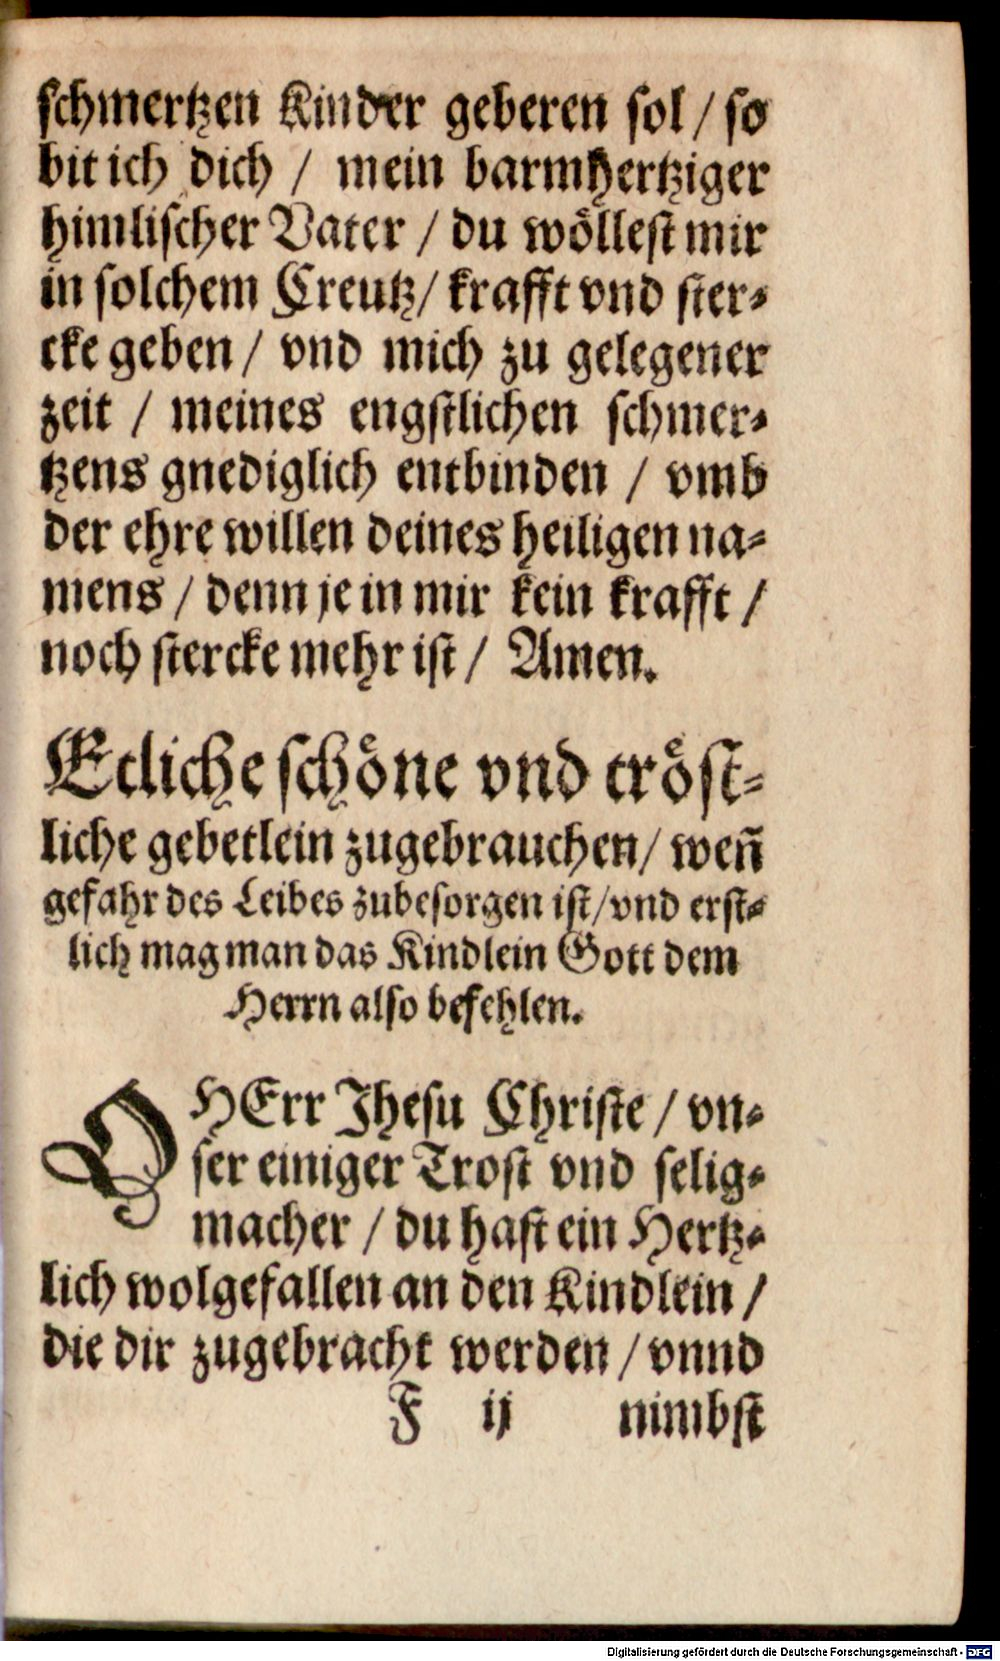 schmertzen Kinder geberen sol / so
bit ich dich / mein barmhertziger
himlischer Vater / du wöllest mir
in solchem Creutz / krafft vnd ster-
cke geben / vnd mich zu gelegener
zeit / meines engstlichen schmer-
tzens gnediglich entbinden / vmb
der ehre willen deines heiligen na-
mens / denn je in mir kein krafft /
noch stercke mehr ist / Amen.
Etliche schöne vnd tröst-
liche gebetlein zugebrauchen / wen̄
gefahr des Leibes zubesorgen ist / vnd erst-
lich mag man das Kindlein Gott dem
Herrn also befehlen.
O HErr Jhesu Christe / vn-
ser einiger Trost vnd selig-
macher / du hast ein Hertz-
lich wolgefallen an den Kindlein /
die dir zugebracht werden / vnnd
F ij nimbst
Digitalisierung gefördert durch die Deutsche Forschungsgemeinschaft - DFG